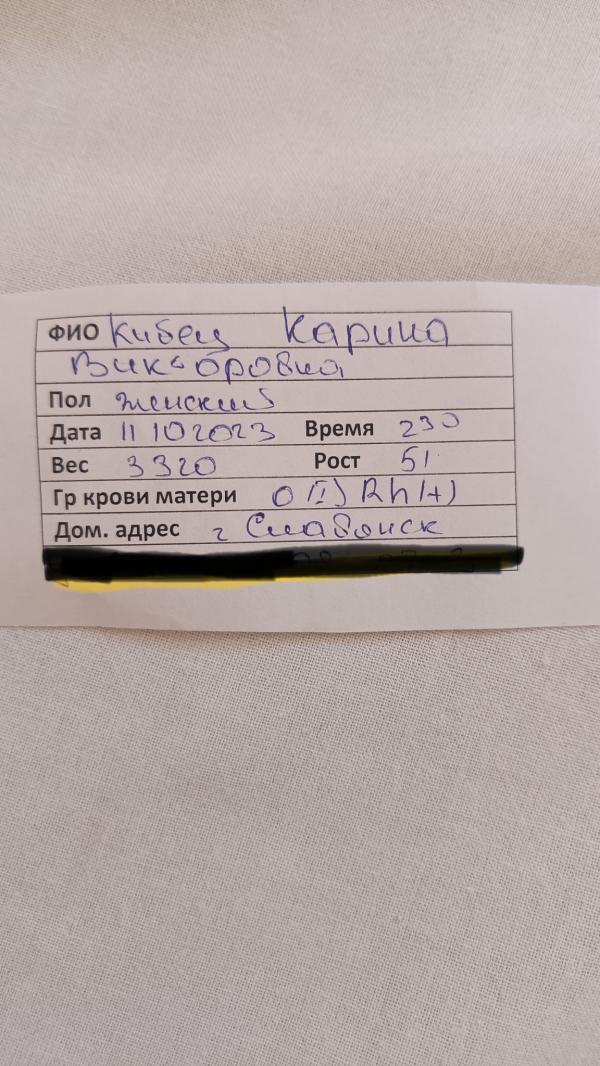 ФИО Кибец Карина
Викторовна
Пол женский
Дата 11 10 2023 Время 2 30
Вес 3320 Рост 51
Гр крови матери O (I) Rh (+)
Дом. адрес г Славянск